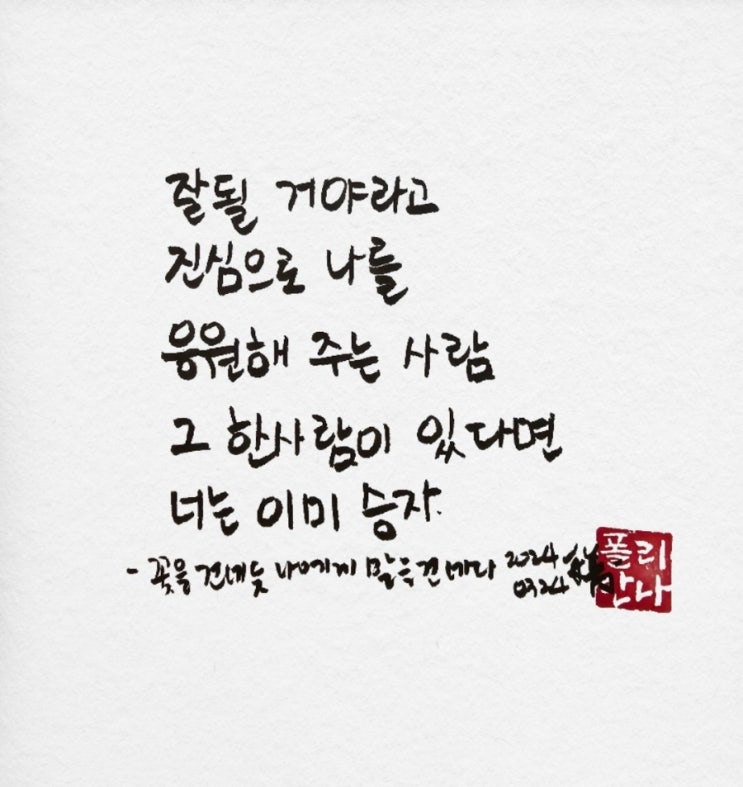 잘될 거야라고
진심으로 나를
응원해 주는 사람
그 한사람이 있다면
너는 이미 승자.
- 꽃을 건네듯 나에게 말을 건네다 2024
0324
폴리
안나